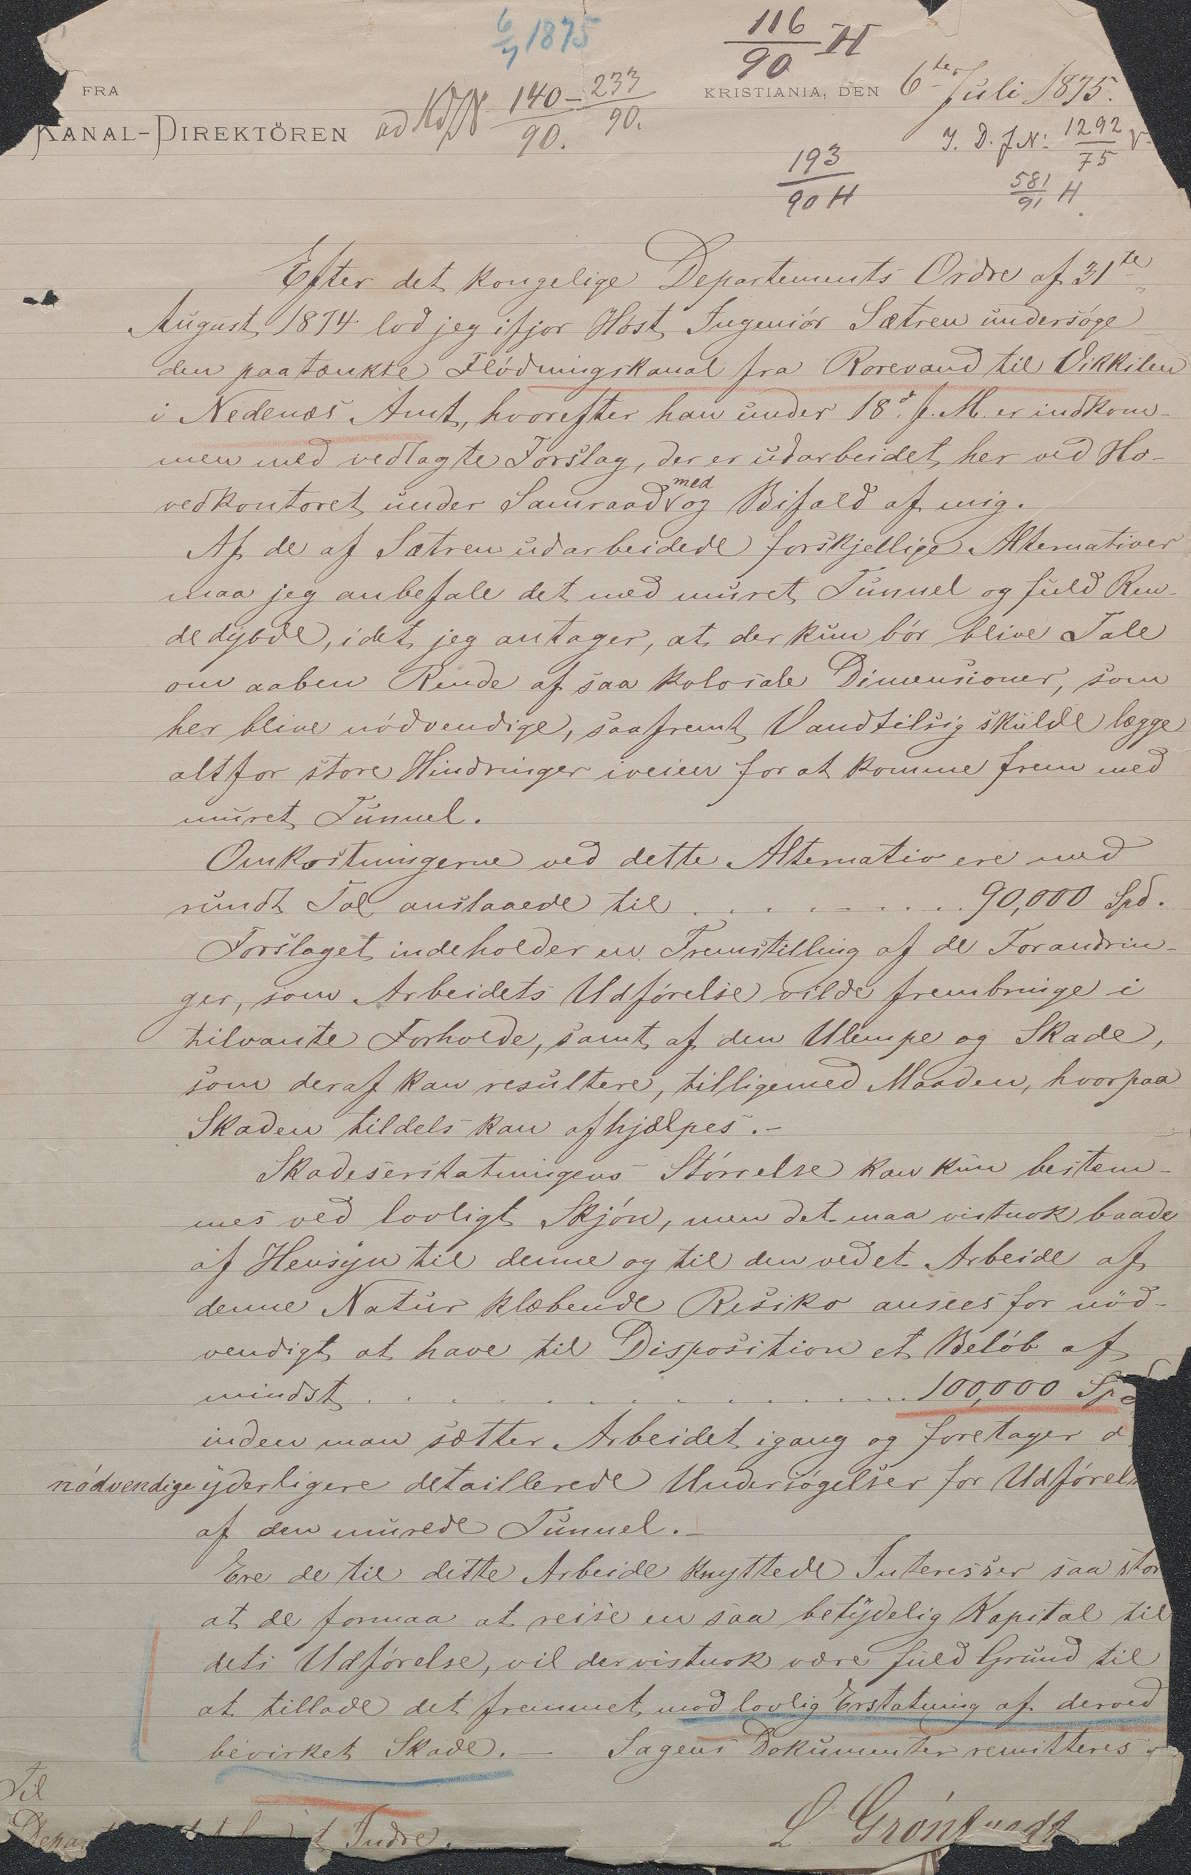 6/7 1875
116/90 H
FRA
KANAL-DIREKTÖREN
ad 140 - 233
90. 90.
KRISTIANIA, DEN 6te Juli 1875.
J. D. J N: 1292/75
193/90 H
581/91 H
Efter det kongelige Departements Ordre af 31te
August 1874 lod jeg ifjor Høst Ingeniör Sætren undersøge
den paatænkte Flödningskanal fra Rorevand til Vikkilen
i Nedenæs Amt, hvorefter han under 18d. f. M. er indkom-
men med vedlagte Forslag, der er udarbeidet her ved Ho-
vedkontoret under Samraad med og Bifald af mig.
Af de af Sætren udarbeidede forskjellige Alternativer
maa jeg anbefale det med muret Tunnel og fuld Ren-
dedybde, idet jeg antager, at der kun bör blive Tale
om aaben Rende af saa kolosale Dimensioner, som
her blive nödvendige, saafremt Vandtilsig skulde lægge
altfor store Hindringer iveien for at komme frem med
muret Tunnel.
Omkostningerne ved dette Alternativ ere med
rundt Tal anslaaede til . . . . . . . . . . 90,000 Spd.
Forslaget indeholder en Fremstilling af de Forandrin-
ger, som Arbeidets Udförelse vilde frembringe i
tilvante Forholde, samt af den Ulempe og Skade,
som deraf kan resultere, tilligemed Maaden, hvorpaa
Skaden tildels kan afhjælpes.-
Skadeserstatningens Störrelse kan kun bestem-
mes ved lovligt Skjön, men det maa vistnok baade
af Hensyn til denne og til den ved et Arbeide af
denne Natur klæbende Risiko ansees for nöd-
vendigt at have til Disposition et Belöb af
mindst . . . . . . . . . . . . 100,000 Spd
inden man sætter Arbeidet igang og foretager d
nödvendige yderligere detaillerede Undersøgelser for Udförels
af den murede Tunnel.-
Ere de til dette Arbeide knyttede Interesser saa stor
at de formaa at reise en saa betydelig Kapital til
dets Udförelse, vil der vistnok være fuld Grund til
at tillade det fremmet mod lovlig Erstatning af derved
bevirket Skade. — Sagens Dokumenter remitteres
Til
Depar Indre.
L Grönqvadt